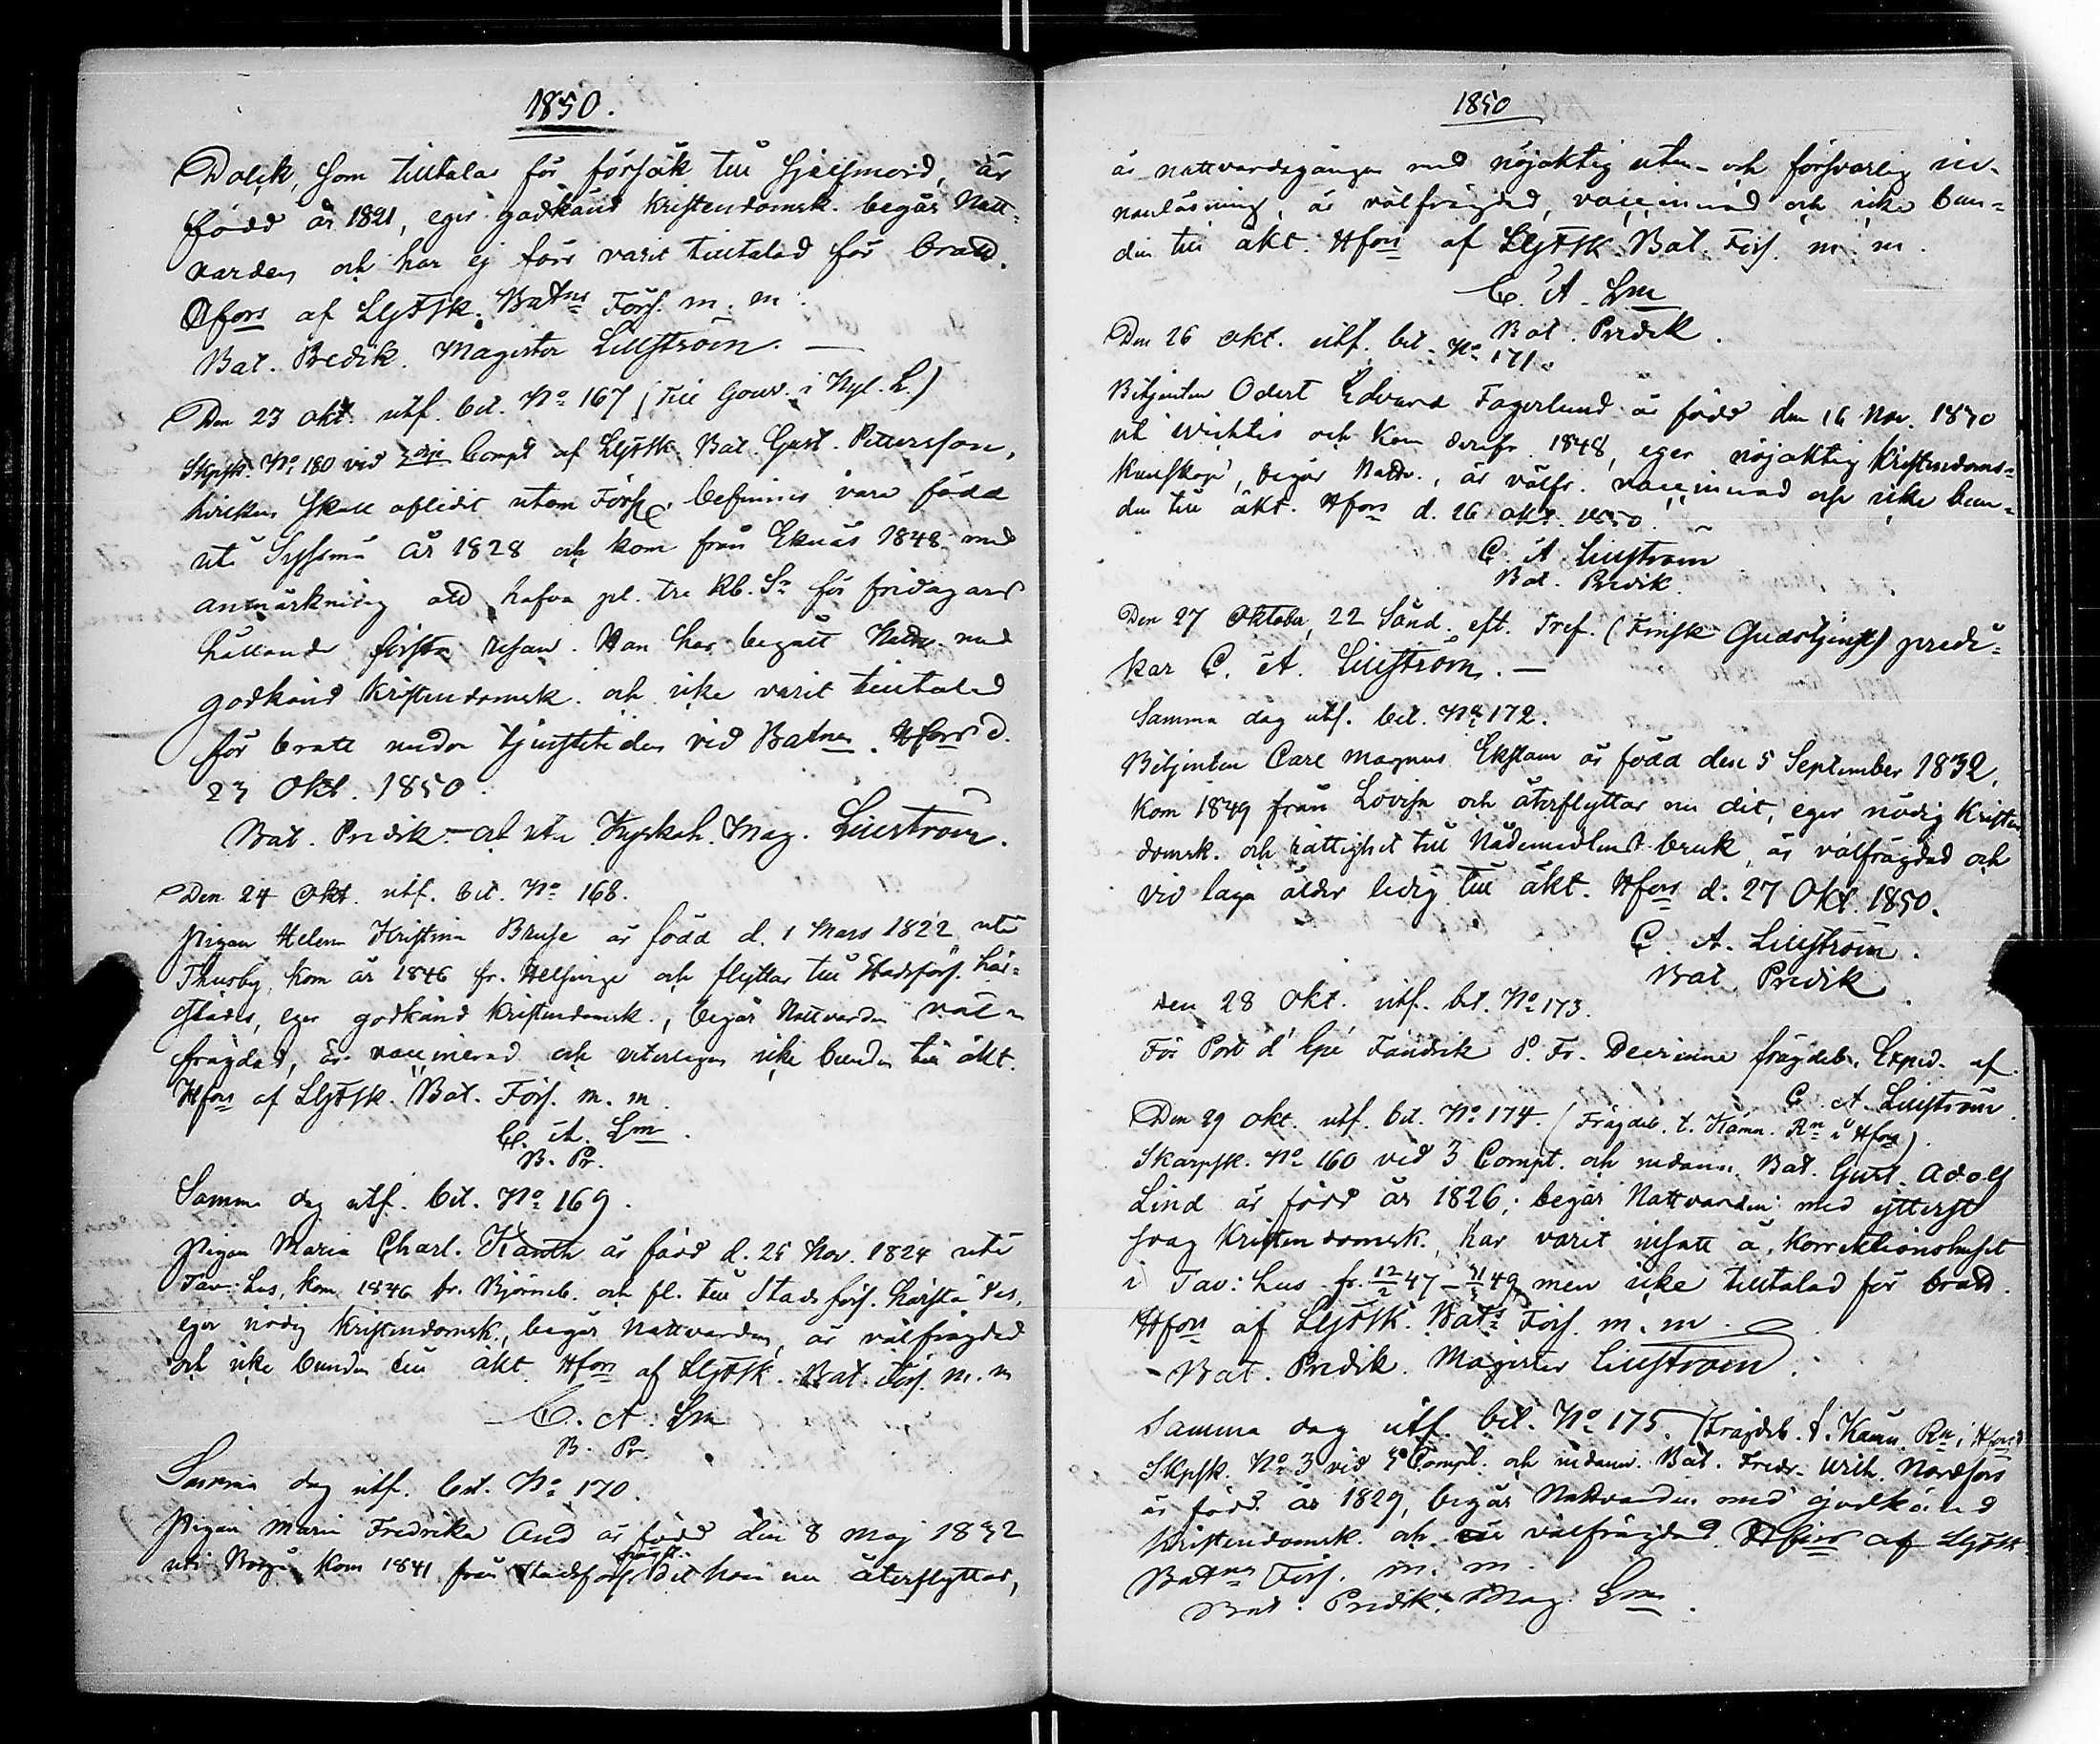 1850.
Dolck, som tilltalas för försök till Sjelfmord, är
född år 1821, eger godkänd kristendomsk. begår Natt-
varden och har ej förr varit tilltalad för brott.
Hfors af LGFSk. Batns Förs. m. m.
Bat. Predik. Magister Lillström. —
Den 23 Okt. utf. bet. No 167 (Till Gouv. i Nyl. L.)
Skpsk. No 180 vid 3dje Compt af LGFSk. Bat. Gust. Pettersson,
hvilken skall aflidit utom Förs. befinnes vara född
uti Sysmä år 1828 och kom från Ekenäs 1848 med
anmärkning att hafva pl. tre Rb. Sr för fridagars
hållande första resan. Han har begått Nattv. med
godkänd kristendomsk. och icke varit tilltalad
för brott under tjenstetiden vid Batnen. Hfors d.
23 Okt. 1850.
Bat. Predik. Mag. Lillström.
Den 24 Okt. utf. bet. No 168.
Pigan Helena Kristina Bruse är född d. 1 Mars 1822 uti
Thusby, kom år 1846 fr. Helsinge och flyttar till Stadsförs. här-
städes, eger godkänd kristendomsk., begår Nattvarden väl-
frägdad, är vaccinerad och veterligen icke bunden till äkt.
Hfors af LGFSk. Bat. Förs. m. m.
C. A. Lm.
B. Pr.
Samma dag utf. bet. No 169.
Pigan Maria Charl. Kanth är född d. 25 Nov. 1824 uti
Tav:hus, kom 1846 fr. Björneb. och fl. till Stads förs. härstädes,
eger nödig kristendomsk., begår Nattvarden, är välfrägdad
och icke bunden till äkt. Hfors af LGFSk. Bat. Förs. m. m
C. A. Lm
B. Pr.
Samma dag utf. bet. No 170.
Pigan Maria Fredrika And är född den 8 Maj 1832
uti Borgå kom 1841 från Stadsförs. dit hon nu återflyttar,
1850
är nattvardsgången med nöjaktig utan- och försvarlig in-
nanläsning, är välfrägdad, vaccinerad och icke bun-
den till äkt. Hfors af LGFSk. Bat. Förs. m. m.
C. A. Lm
Bat. Predik.
Den 26 Okt. utf. bet. No 171.
Betjenten Odert Edvard Fagerlund är född den 16 Nov. 1830
uti Wichtis och kom derifr. 1848, eger nöjaktig Kristendoms-
kunskap, begår Nattv., är välfr. vaccinerad och icke bun-
den till äkt. Hfors d. 26 Okt. 1850. —
C. A. Lillström
Bat. Predik.
Den 27 Oktober, 22 Sönd. eft. Tref. (Finsk Gudstjenst) predi-
kar C. A. Lillström. —
Samma dag utf. bet. No 172.
Betjenten Carl Magnus Ekstam är född den 5 September 1832,
kom 1849 från Lovisa och återflyttar nu dit, eger nödig Kristen
domsk. och rättighet till Nådemedlens bruk, är välfrägdad och
vid laga ålder ledig till äkt. Hfors d. 27 Okt. 1850.
C. A. Lillström.
Bat. Predik
Den 28 Okt. utf. bet. No 173.
För Port d' Epé Fändrik frägdeb. Exped. af
C. A. Lillström.
Den 29 Okt. utf. bet. No 174. (Frägdeb. t. Kämn. Rn i Hfors).
Skarpsk. No 160 vid 3 Compt. och nedann. Bat. Gust. Adolf
Lind är född år 1826, begår Nattvarden med ytterst
svag kristendomsk. har varit insatt å Korrektionshuset
i Tav:hus fr. 12/2 47 – 49, men icke tilltalad för brott.
Hfors af LGFSk. Bats Förs. m. m.
Bat. Predik. Magister Lillström.
Samma dag utf. bet. No 175. (Frägdeb. t. Kämn. Rn i Hfors)
Skpsk. No 3 vid Compt. och nedann. Bat. Fredr. Wilh. Nordfors
är född år 1829, begår Nattvarden med godkänd
kristendomsk. och är välfrägdad. Hfors af LGFSk.
Batns Förs. m. m.
Bat. Predik. Mag. Lm.